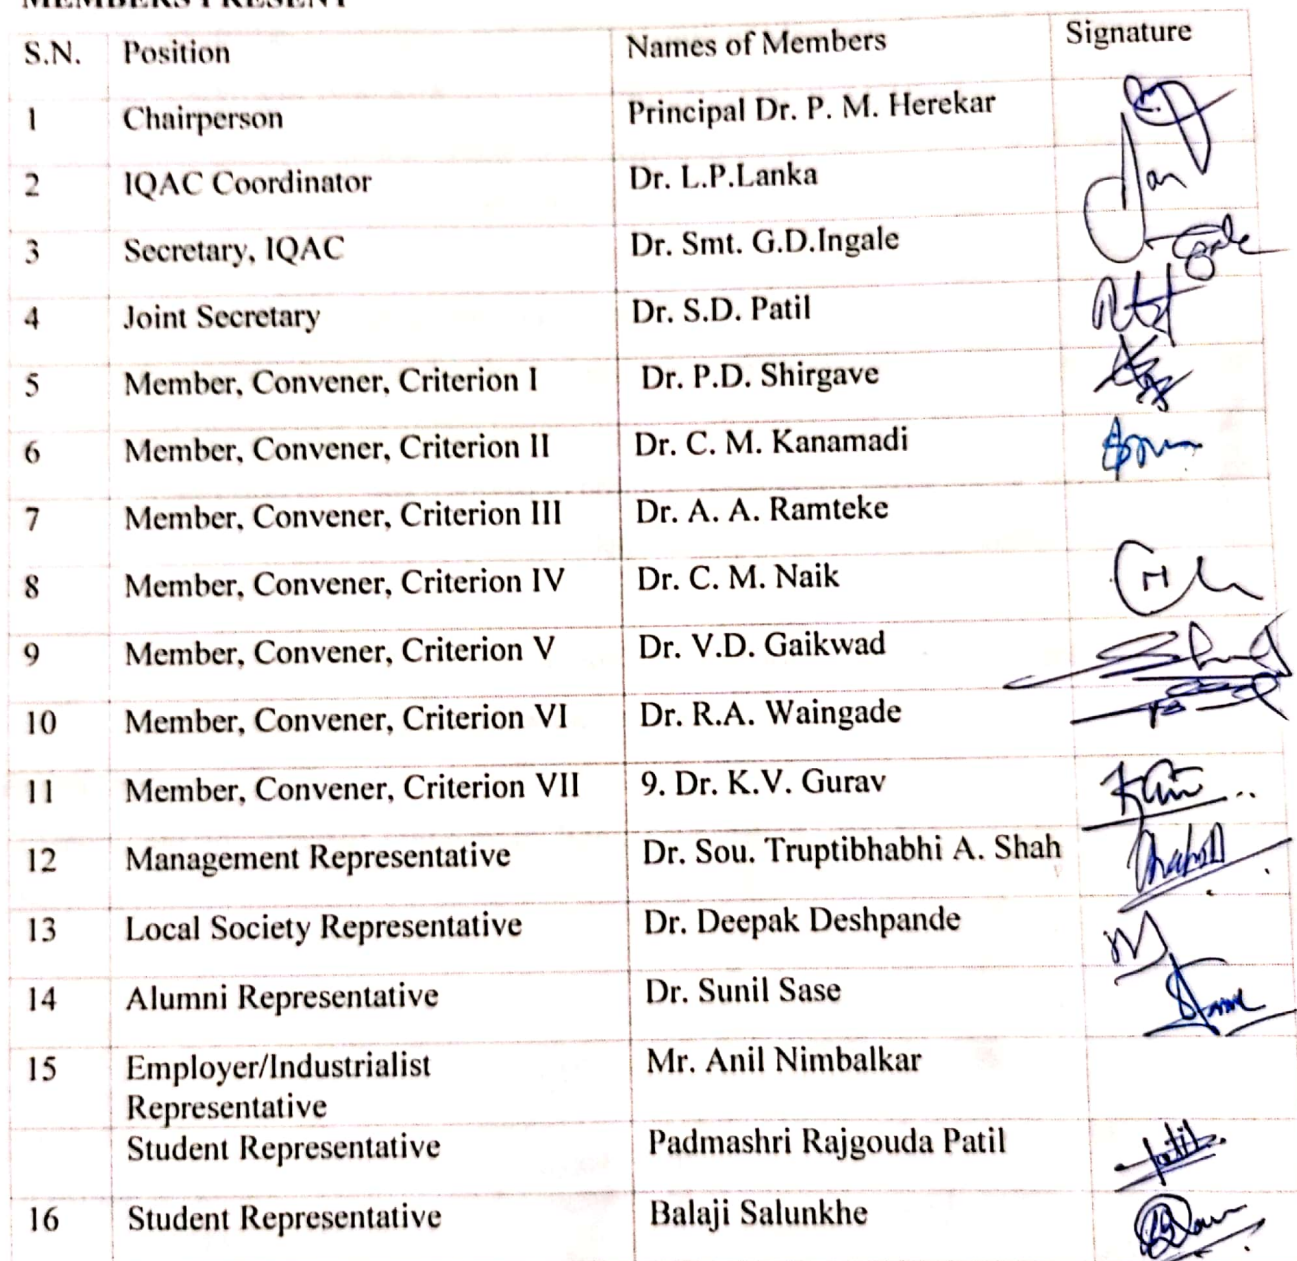 MEMBERS PRESENT
S.N. Position Names of Members Signature
1 Chairperson Principal Dr. P. M. Herekar
2 IQAC Coordinator Dr. L.P.Lanka
3 Secretary, IQAC Dr. Smt. G.D.Ingale
4 Joint Secretary Dr. S.D. Patil
5 Member, Convener, Criterion I Dr. P.D. Shirgave
6 Member, Convener, Criterion II Dr. C. M. Kanamadi
7 Member, Convener, Criterion III Dr. A. A. Ramteke
8 Member, Convener, Criterion IV Dr. C. M. Naik
9 Member, Convener, Criterion V Dr. V.D. Gaikwad
10 Member, Convener, Criterion VI Dr. R.A. Waingade
11 Member, Convener, Criterion VII 9. Dr. K.V. Gurav
12 Management Representative Dr. Sou. Truptibhabhi A. Shah
13 Local Society Representative Dr. Deepak Deshpande
14 Alumni Representative Dr. Sunil Sase
15 Employer/Industrialist Mr. Anil Nimbalkar
Representative
Student Representative Padmashri Rajgouda Patil
16 Student Representative Balaji Salunkhe